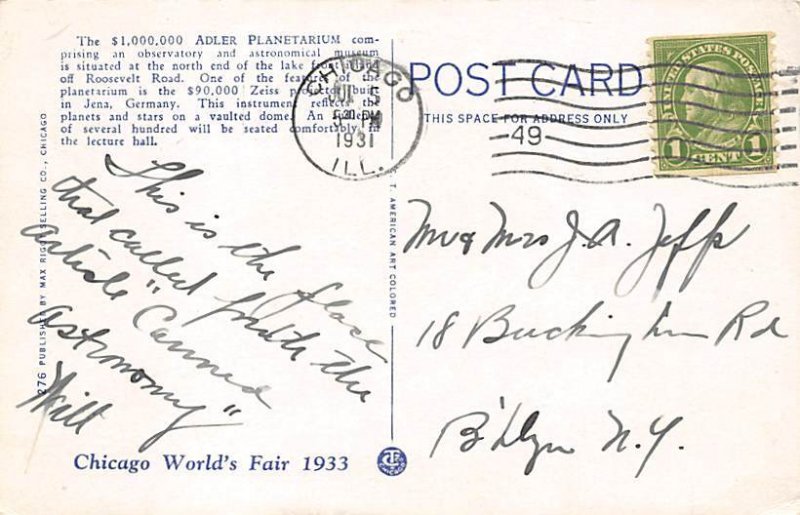 The $1,000,000 ADLER PLANETARIUM com-
prising an observatory and astronomical museum
is situated at the north end of the lake front island
off Roosevelt Road. One of the features of the
planetarium is the $90,000 Zeiss projector built
in Jena, Germany. This instrument reflects the
planets and stars on a vaulted dome. An
of several hundred will be seated comfortably in
the lecture hall.
This is the place
that called forth the
article "Canned
Astronomy"
Will
Chicago World's Fair 1933
276 PUBLISHED BY MAX RIGOT SELLING CO., CHICAGO
C. T. AMERICAN ART COLORED
CHICAGO
JUL 5
PM
1931
ILL.
49
POST CARD
THIS SPACE FOR ADDRESS ONLY
UNITED STATES POSTAGE
1 CENT 1
Mr & Mrs J. A. Jeffs
18 Buckingham Rd
B'klyn N.Y.